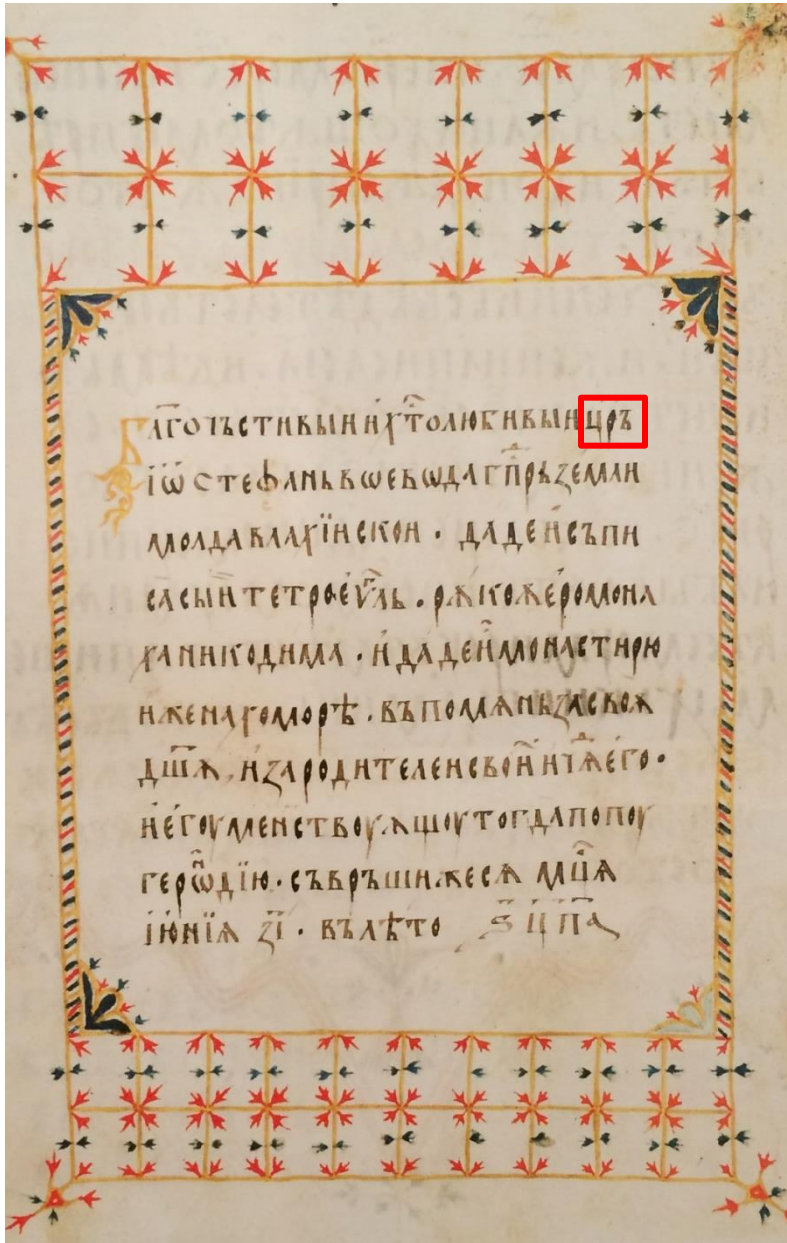 Благочьстивыи и хⷭ҇толюбивыи црь
іѡ стефань воевѡда гп҇рь земли
молдавлахїискои · даде и съпи
са сьи тетроеѵ҃ль · рѫкоѫ еромона
ха никодима · и даде и монастирю
иже на хоморѣ · въ помѧнь за своѧ
дш҃ѫ · и за родителеи свои и чѧ его ·
и егоуменствоуѫщоу тогда попоу
герѡⷩ҇дїю · съвръшижесѧ мцⷭ҇ѧ
іюнїа зі҃ · въ лѣто ѕ҃ ц҃ п҃а